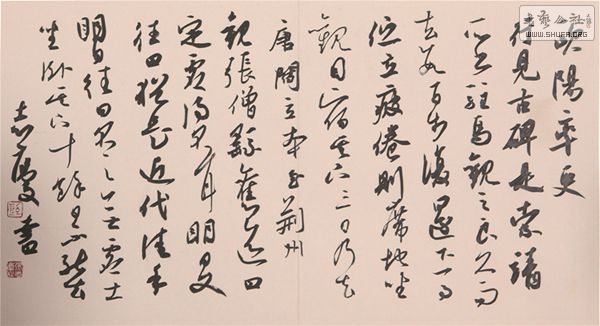 歐陽率更
行見古碑是索靖
所書駐馬觀之良久而
去數百步復還下馬
佇立疲倦則席地坐
觀因宿其下三日乃去
唐閻立本至荆州
觀張僧繇舊迹曰
定虛得名耳明日又
往曰猶是近代佳手
明日往曰名下無虛士
坐卧其下十餘日不能去
書
書藝公社
WWW.SHUFA.ORG